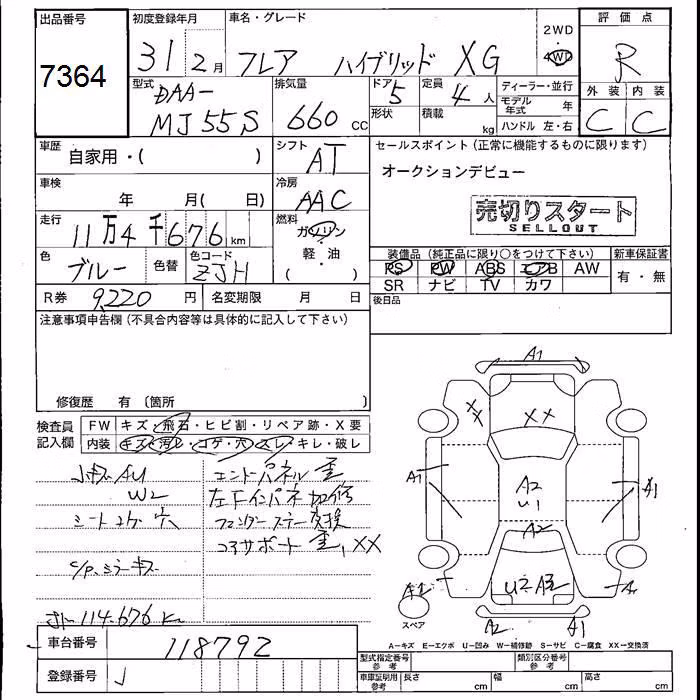 出品番号
7364
初度登録年月
31 2月
車名・グレード
フレア ハイブリッド XG
2WD
4WD
評価点
R
外装 内装
C C
型式
DAA-
MJ55S
排気量
660 cc
ドア
5
形状
定員
4人
積載
kg
ディーラー・並行
モデル年式 年
ハンドル 左・右
車歴
自家用・( )
シフト
AT
車検
年 月( 日)
冷房
AAC
走行
11万4千676km
燃料
ガソリン
軽・油
( )
色
ブルー
色替
色コード
ZJH
R券 9220円
名変期限 月 日
セールスポイント(正常に機能するものに限ります)
オークションデビュー
売切りスタート
SELLOUT
装備品(純正品に限り○をつけて下さい)
PS PW ABS エアB AW
SR ナビ TV カワ
新車保証書
有・無
後日品
注意事項申告欄(不具合内容等は具体的に記入して下さい)
修復歴 有〔箇所 〕
検査員記入欄
FW キズ・飛石・ヒビ割・リペア跡・X要
内装 キズ・汚レ・コゲ・穴・スレ・キレ・破レ
小キズAU
W2
シートコゲ穴
C/Pミラーキズ
114.676K
エンドパネル歪
左Fインパネ加修
フェンダーステー交換
コアサポート歪、XX
A1
XX
XX
A1
A2
U1
A1
A2
U2 A3
A2
A1
スペア
A-キズ E-エクボ U-凹み W-補修跡 S-サビ C-腐食 XX-交換済
車台番号 118792
登録番号
型式指定番号 参考
類別区分番号 参考
車庫証明用 参考
長さ cm
幅 cm
高さ cm